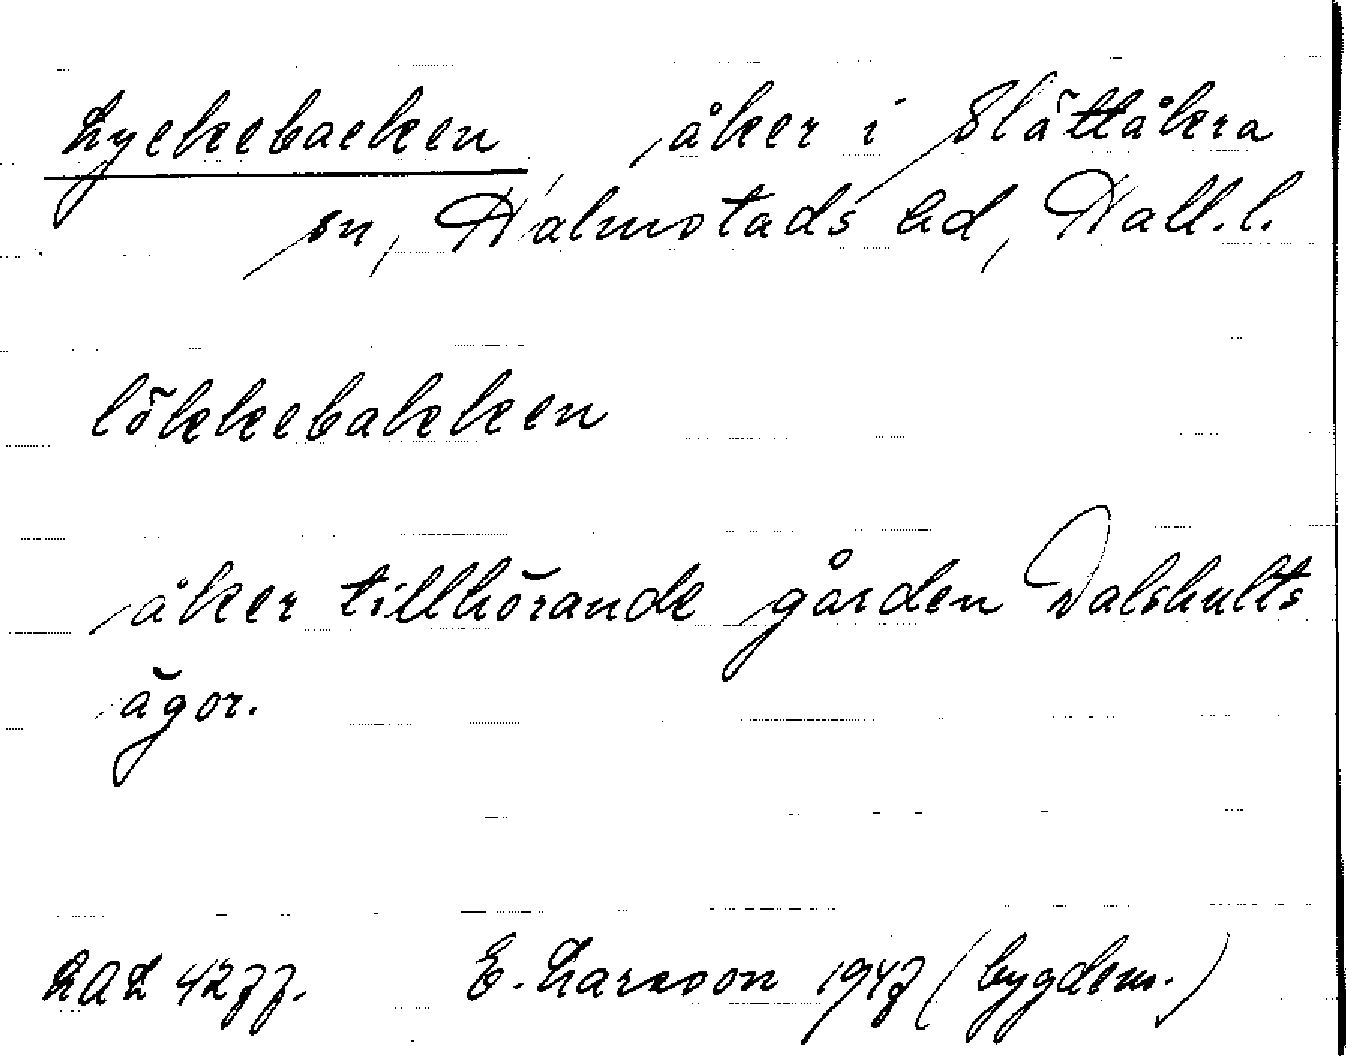 Lyckebacken, åker i Slättåkra
sn, Halmstads hd, Hall.l.
lökkebakken
åker tillhörande gården Dalshults
ägor.
LAL 4277. E. Larsson 1947 (bygdem.)